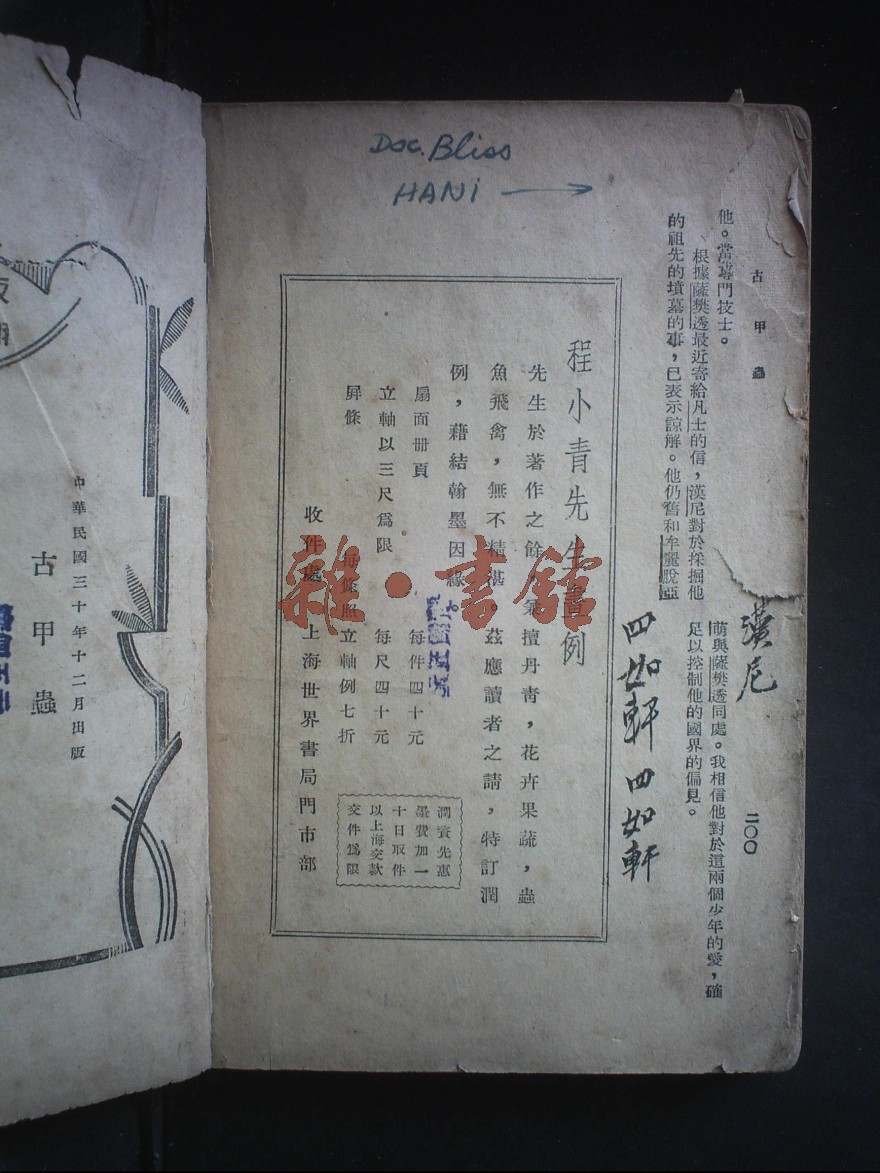 Doc. Bliss
HANI →
古甲蟲
二〇〇
他。當專門技士。
根據薩樊透最近寄給凡士的信，漢尼對於採掘他
的祖先的墳墓的事，已表示諒解。他仍舊和牟麗脫亞
萌與薩樊透同處。我相信他對於這兩個少年的愛，確
足以控制他的國界的偏見。
漢尼
四如軒 四如軒
程小青先生畫例
先生於著作之餘，兼擅丹青，花卉果蔬，蟲
魚飛禽，無不精湛。茲應讀者之請，特訂潤
例，藉結翰墨因緣。
扇面冊頁 每件四十元
立軸以三尺爲限 每尺四十元
屛條 每條照立軸例七折
收件處 上海世界書局門市部
潤資先惠
墨費加一
十日取件
以上海交款
交件爲限
雜·書館
中華民國三十年十二月出版
古甲蟲